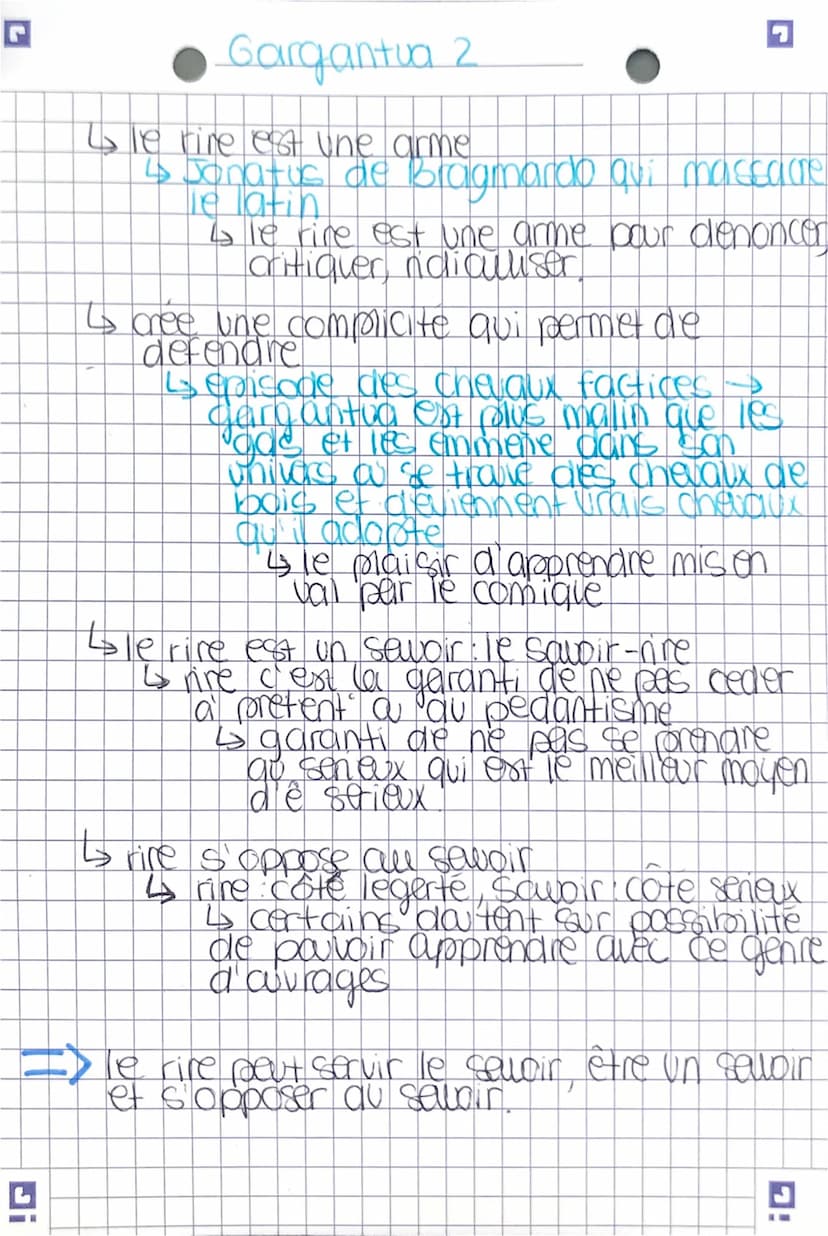 Gargantua 2
↳ le rire est une arme
↳ Jonatus de Bragmardo qui massacre
le latin
↳ le rire est une arme pour dénoncer,
critiquer, ridiculiser.
↳ crée une complicité qui permet de
défendre
↳ épisode des chevaux factices →
gargantua est plus malin que les
gds et les emmène dans son
univers où se trouve des chevaux de
bois et deviennent vrais chevaux
qu'il adopte
↳ le plaisir d'apprendre mis en
val par le comique
↳ le rire est un savoir : le savoir-rire
↳ rire c'est la garanti de ne pas ceder
à prétent° ou au pédantisme
↳ garanti de ne pas se prendre
au serieux qui est le meilleur moyen
d'ê serieux.
↳ rire s'oppose au savoir
↳ rire : côté légerté, savoir : côte serieux
↳ certains doutent sur possibilité
de pouvoir apprendre avec ce genre
d'ouvrages
=> le rire peut servir le savoir, être un savoir
et s'opposer au savoir.